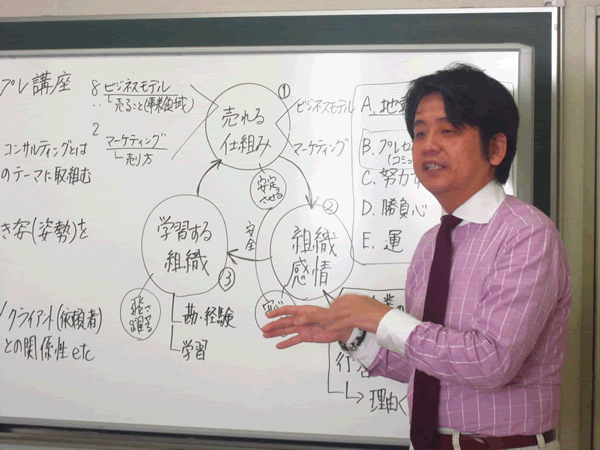 プレ講座
コンサルティングとは
のテーマに取組む
き姿(姿勢)を
クライアント(依頼者)
との関係性 etc
8 ビジネスモデル
売ること(事業領域)
2 マーケティング
売り方
①
売れる
仕組み
ビジネスモデル
マーケティング
安定
させる
②
組織
感情
安全
学習する
組織
③
飛
躍
させる
勘・経験
学習
A. 地
B. プレゼ
(コミ
C. 努力
D. 勝負心
E. 運
行
理由